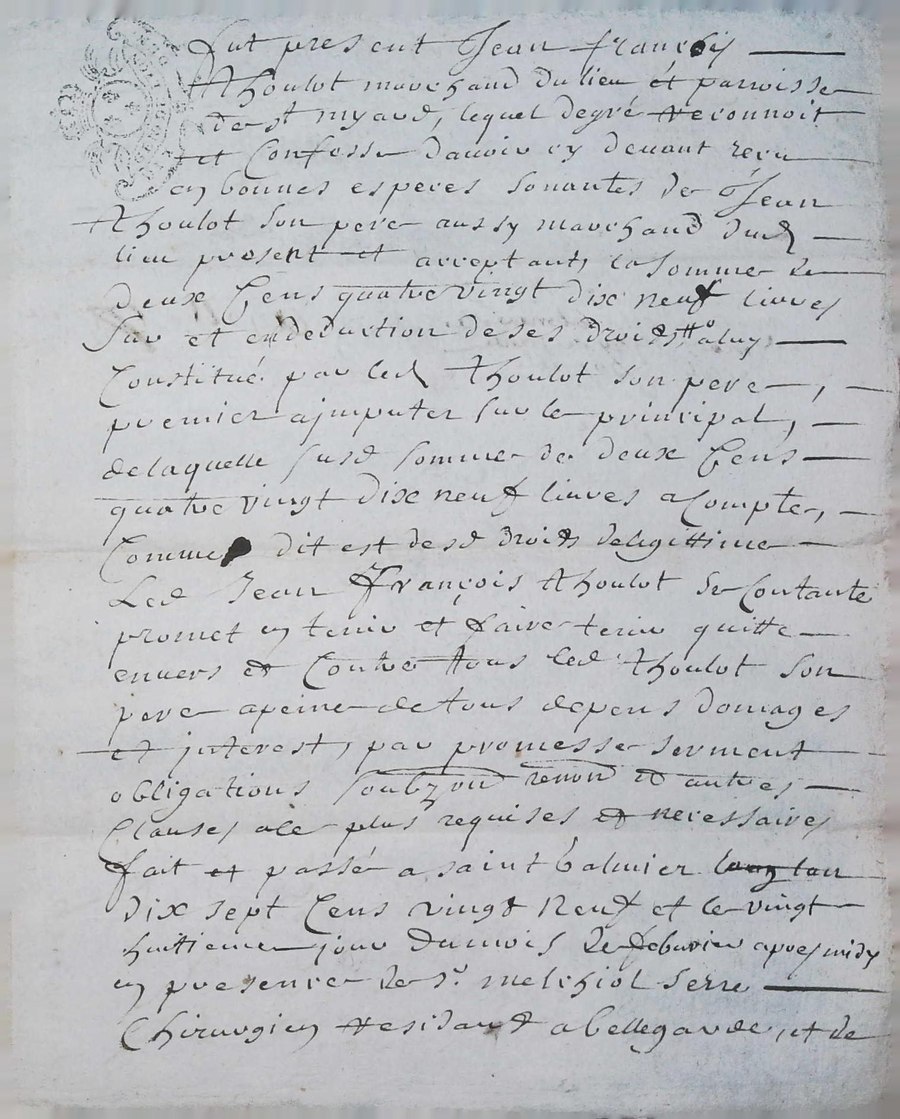 fut present Jean françois
thoulot marchand du lieu et parroisse
de st myard, lequel degré reconnoit
et Confesse davoir cy devant receu
en bonnes especes sonantes de Jean
thoulot son pere aussy marchand dud
lieu present et acceptant, la somme de
deux Cens quatre vingt dix neuf livres
sur et en deduction de ses droids aluy
Constitué par led thoulot son pere,
premier ajmputer sur le principal,
de laquelle susd somme de deux Cens
quatre vingt dix neuf livres a Compte,
Comme dit est desd droids delegittime
Led Jean François thoulot se Contante
promet en tenir et faire tenir quitte
envers et Contre tous led thoulot son
pere apeine de tous depens domages
et interest, par promesse serment
obligations soubzon renon et autres
Clauses ale plus requises et necessaires
fait et passé a saint Galmier lan
dix sept Cens vingt Neuf et le vingt
huitieme jour du mois de febvrier apres midy
en presence de sr. melchiol serre
Chirurgien residant a bellegarde, et de